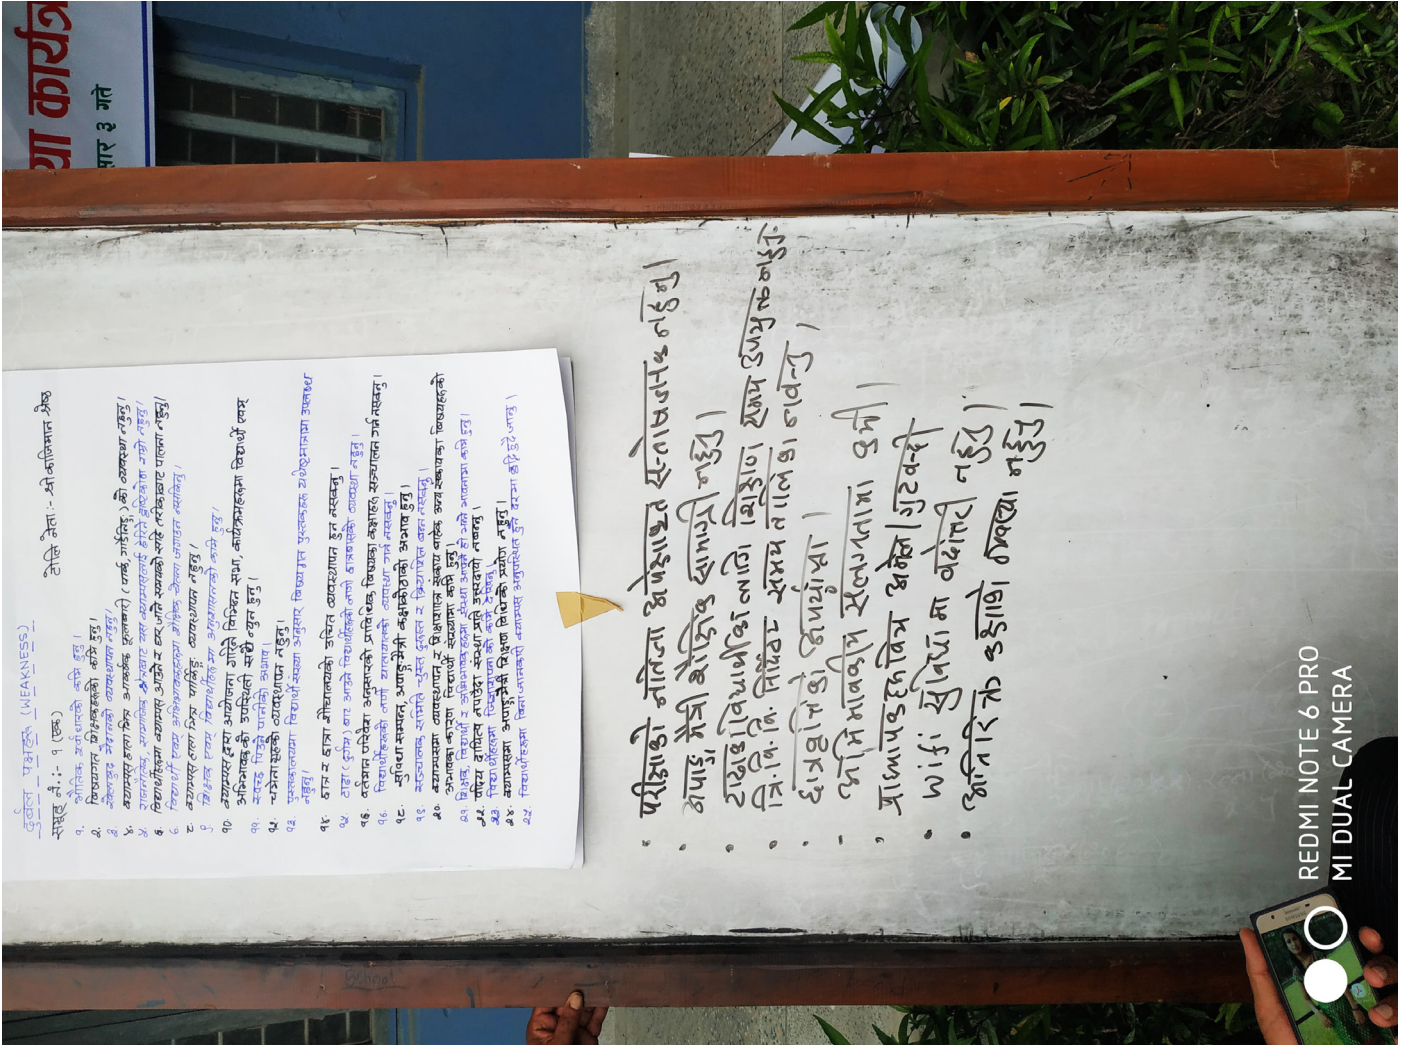 या कार्यक्र
सार ३ गते
दुर्वल पक्षहरू (WEAKNESS)
समूह नं.:- १ (एक) टोलि नेता :- श्री काजिमान श्रेष्ठ
१. भौतिक पूर्वाधारको कमि हुनु ।
२. विषयगत शिक्षकहरूको कमि हुनु ।
३. खेलकुद मैदानको व्यवस्थापन नहुनु
४. क्याम्पस हाता भित्र आकर्षक फूलबारी (पार्क, गार्डेनिङ्ग) को व्यवस्था नहुनु ।
५. राजनैतिक, सामाजिक क्षेत्रबाट यस क्याम्पसलाई हेरिने दृष्टिकोण राम्रो नहुनु ।
६. विद्यार्थीहरूमा क्याम्पस आउने र घर जाने समयको सही तरीकाबाट पालना नहुनु।
७. विद्यार्थी एवम् अभिभावकहरूमा शैक्षिक चेतना जगाउन नसकिनु ।
८. क्याम्पस हाता भित्र पार्किङ्ग व्यवस्थापन नहुनु ।
९. शिक्षक एवम् विद्यार्थीहरूमा अनुशासनको कमि हुनु ।
१०. क्याम्पस द्वारा आयोजना गरिने विभिन्न सभा, कार्यक्रमहरूमा विद्यार्थी एवम्
अभिभावकको उपस्थिती साह्रै न्युन हुनु ।
११. स्वच्छ पिउने पानीको अभाव ।
१२. चमेनागृहको व्यवस्थापन नहुनु ।
१३. पुस्तकालयमा विद्यार्थी संख्या अनुसार विषयगत पुस्तकहरू यथेष्ट मात्रामा उपलब्ध
नहुनु ।
१४. छात्र र छात्रा शौचालयको उचित व्यवस्थापन हुन नसक्नु ।
१५. टाढा (दुर्गम) बाट आउने विद्यार्थीहरूको लागी छात्रबासको व्यवस्था नहुनु ।
१६. वर्तमान परिवेश अनुसारको प्राविधिक विषयका कक्षाहरू सञ्चालन गर्न नसक्नु ।
१७. विद्यार्थीहरूको लागी यातायातको व्यवस्था गर्न नसक्नु ।
१८. सुविधा सम्पन्न, अपाङ्गमैत्री कक्षाकोठाको अभाव हुनु ।
१९. सञ्चालक समिति चुस्त दुरुस्त र क्रियाशिल बन्न नसक्नु ।
२०. क्याम्पसमा व्यवस्थापन र शिक्षाशास्त्र संकाय बाहेक अन्य संकायका विषयहरूको
अभावका कारण विद्यार्थी संख्यामा कमि हुनु ।
२१. शिक्षक, विद्यार्थी र अभिभावकहरूमा संस्था आफ्नै हो भन्ने भावनामा कमि हुनु ।
२२. पदिय दायित्व नपाउँदा संस्था प्रति उत्तरदायी नबन्नु ।
२३. विद्यार्थीहरूमा जिज्ञासापन को कमि देखिनु ।
२४. क्याम्पसमा अपाङ्गमैत्री शिक्षण विधिको प्रयोग नहुनु ।
२५. विद्यार्थीहरूमा बिना जानकारी क्याम्पस अनुपस्थित हुने दरमा वृद्धि हुदै जानु ।
• परिक्षाको नतिजा अपेक्षाकृत सन्तोषजनक नहुनु ।
• अपाङ्ग मैत्री शैक्षिक सामाग्री नहुनु ।
• टाढाका विद्यार्थीका लागि शिक्षण समय उपयुक्त नहुनु
• त्रि.वि.वि. निर्मित समय तालिका नबन्नु ।
• छात्रवृत्तिको अपर्याप्तता ।
- अभिभावकीय संलग्नतामा कमी ।
• प्राध्यापकहरू विच अमेल / गुटबन्दी
• wifi सुविधा मा बढोत्तरी नहुनु ।
• आन्तरिक कडाइको व्यवस्था नहुनु ।
REDMI NOTE 6 PRO
MI DUAL CAMERA